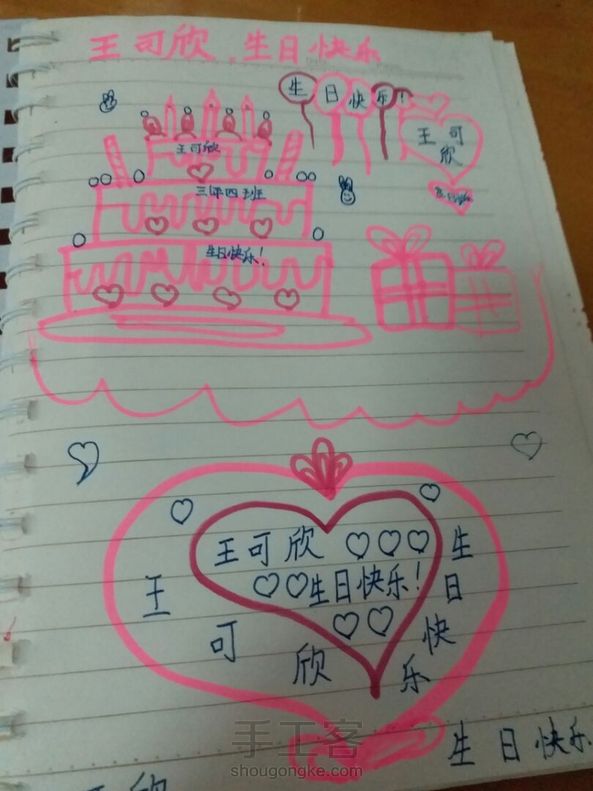 王可欣，生日快乐
生日快乐！
王可
欣
王可欣
三年四班
生日快乐！
王可欣♡♡♡
♡♡生日快乐！
♡♡
王可欣
生日快乐
生日快乐
手工客
shougongke.com